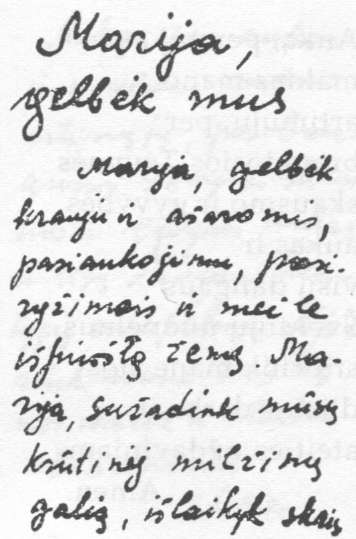 Marija,
gelbėk mus
Marija, gelbėk
krauju ir ašaromis,
pasiaukojimu, pasi-
ryžimais ir meile
išpuoštą žemę. Ma-
rija, sužadink mūsų
krūtinėj milžinų
galią, išlaikyk